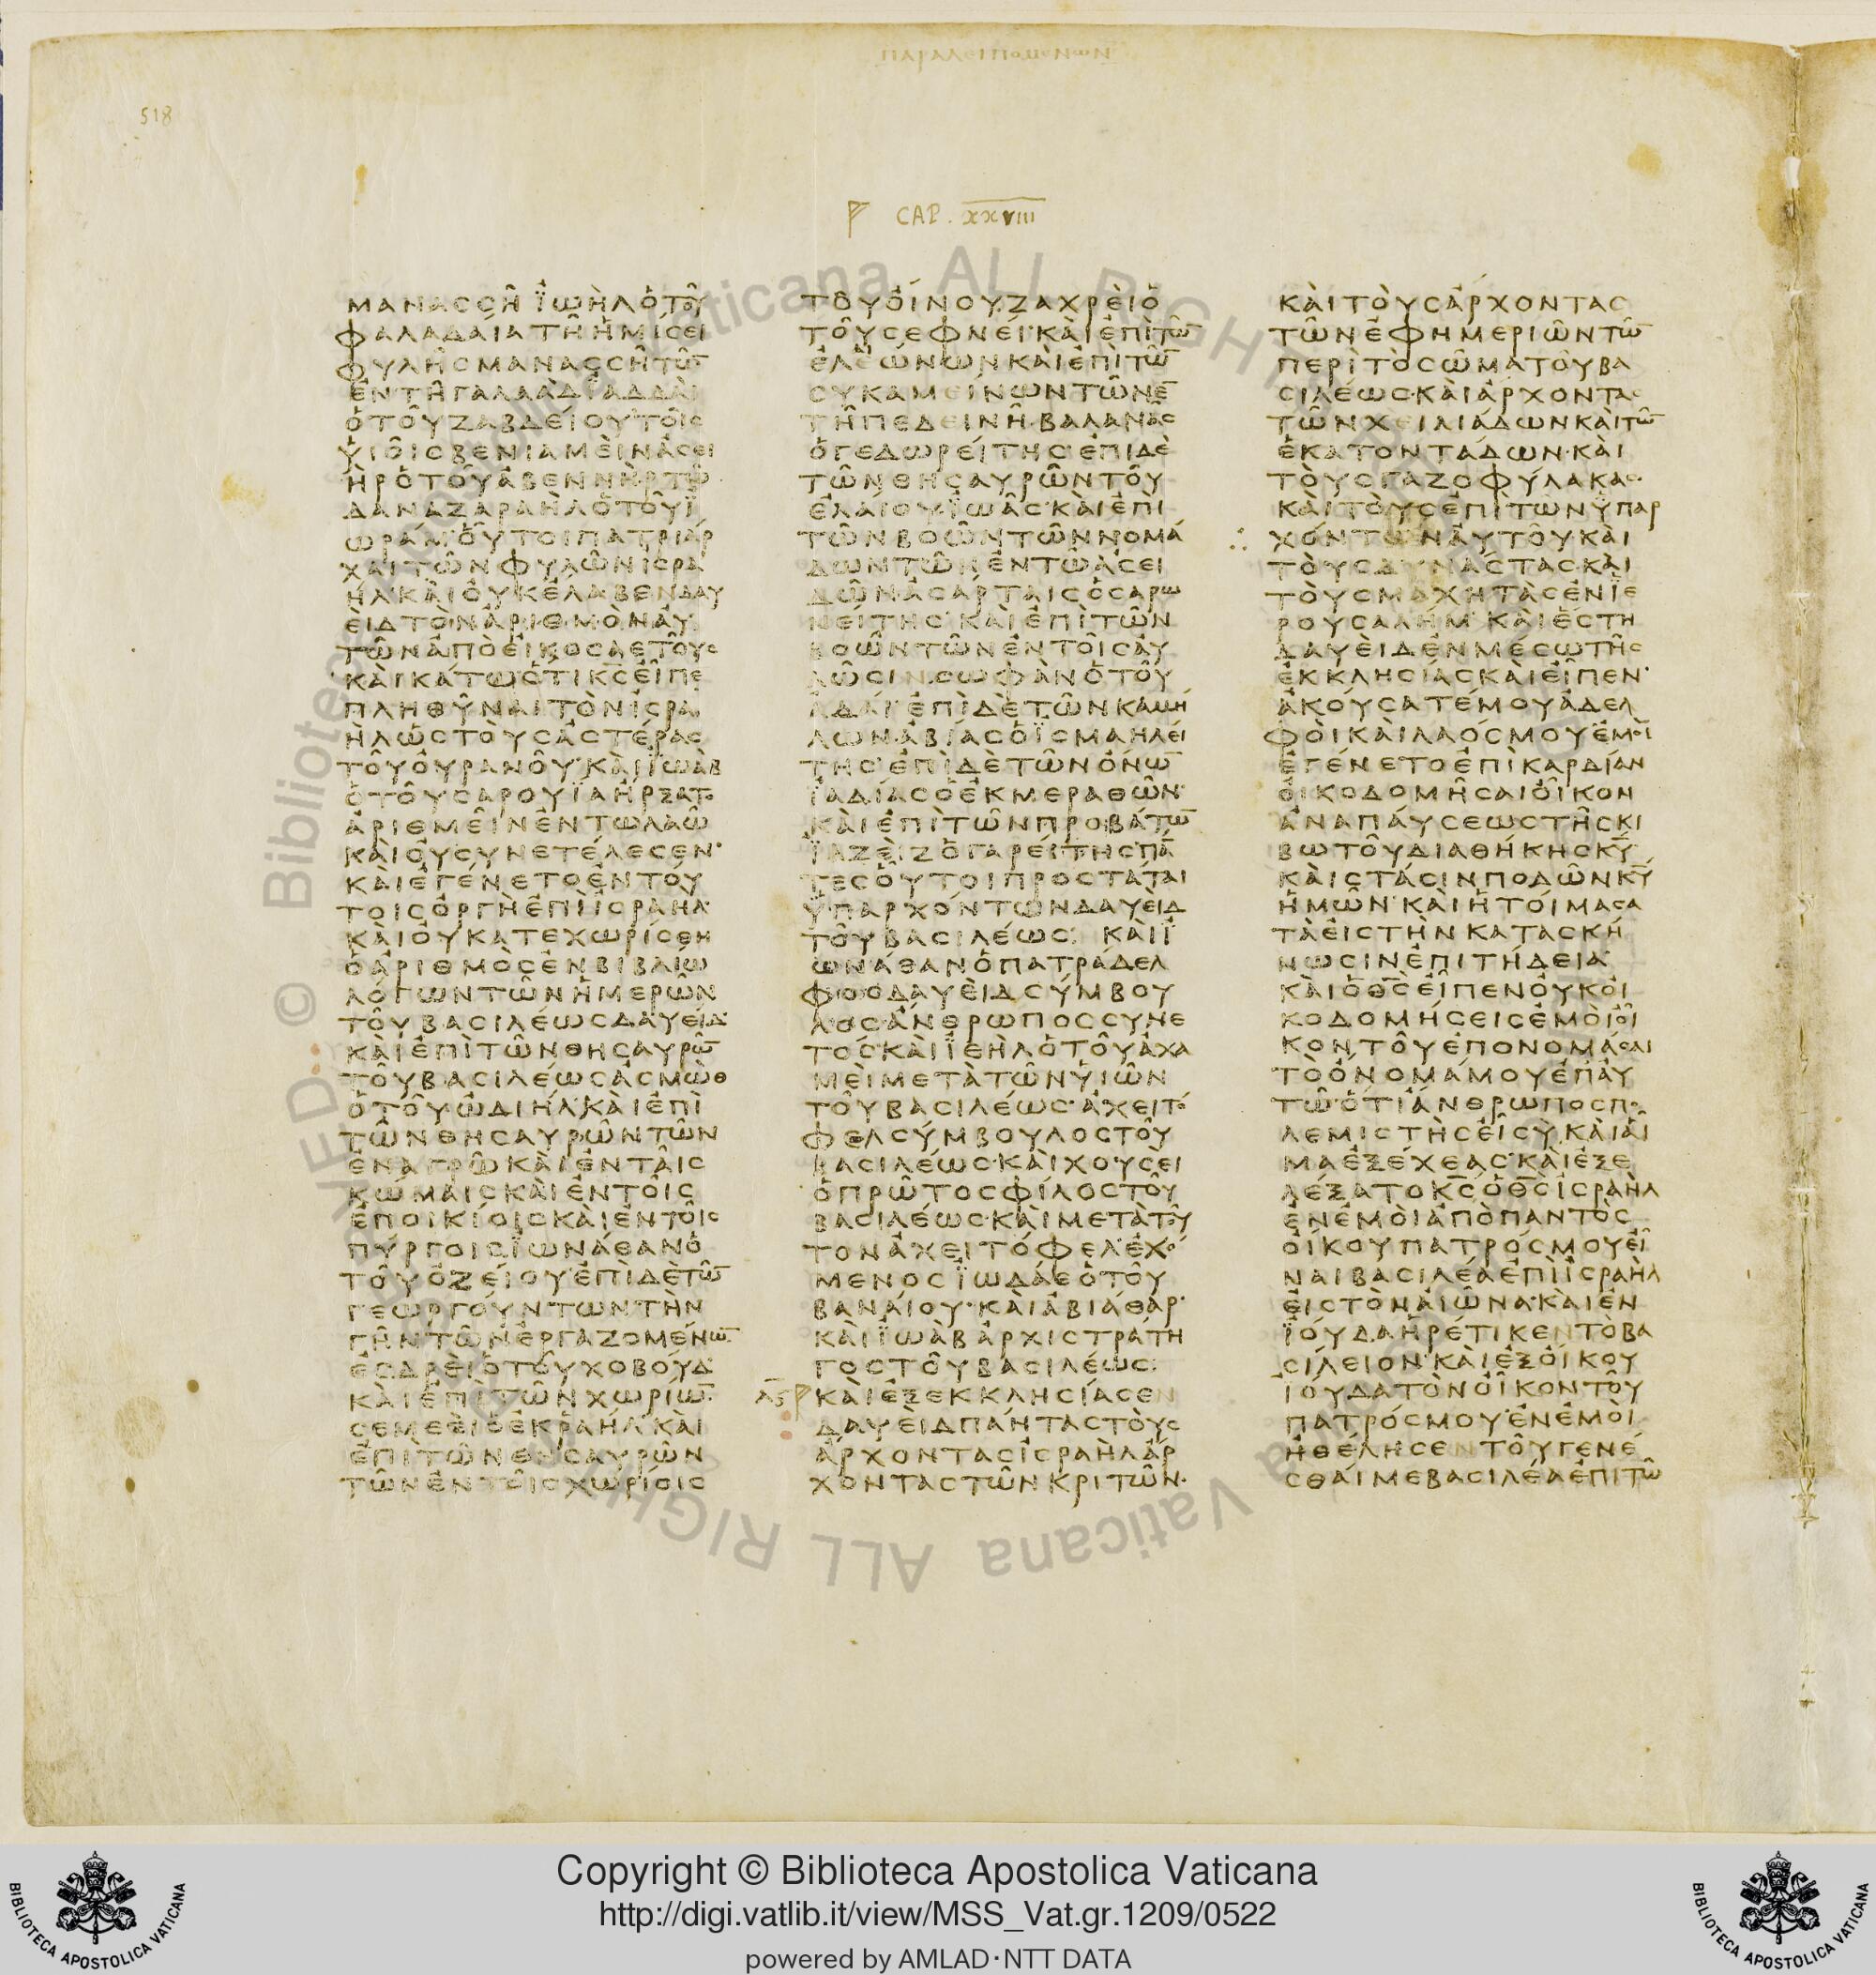 ΠΑΡΑΛΕΙΠΟΜΕΝΩΝ
518
CAP. XXVIII
ΜΑΝΑССΗ ΪΩΗΛΟΤΟΥ
ΦΑΛΑΔΑΙΑΤΗΗΜΙСΕΙ
ΦΥΛΗСΜΑΝΑССΗΤΩ̅
ΕΝΤΗΓΑΛΑΑΔΙΑΔΔΑΙ
ΟΤΟΥΖΑΒΔΕΙΟΥΤΟΙС
ΥΙΟΙСΒΕΝΙΑΜΕΙΝΑСΕΙ
ΗΡΟΤΟΥΑΒΕΝΝΗΡΤΩ
ΔΑΝΑΖΑΡΑΗΛΟΤΟΥΪ
ΩΡΑΜ·ΟΥΤΟΙΠΑΤΡΙΑΡ
ΧΑΙΤΩΝΦΥΛΩΝΙСΡΑ
ΗΛ·ΚΑΙΟΥΚΕΛΑΒΕΝΔΑΥ
ΕΙΔΤΟΝΑΡΙΘΜΟΝΑΥ
ΤΩΝΑΠΟΕΙΚΟСΑΕΤΟΥС
ΚΑΙΚΑΤΩ·ΟΤΙΚ̅С̅ΕΙΠΕ
ΠΛΗΘΥΝΑΙΤΟΝΙСΡΑ
ΗΛΩСΤΟΥСΑСΤΕΡΑС
ΤΟΥΟΥΡΑΝΟΥ·ΚΑΙΪΩΑΒ
ΟΤΟΥСΑΡΟΥΙΑΗΡΞΑΤΟ
ΑΡΙΘΜΕΙΝΕΝΤΩΛΑΩ
ΚΑΙΟΥСΥΝΕΤΕΛΕСΕΝ·
ΚΑΙΕΓΕΝΕΤΟΕΝΤΟΥ
ΤΟΙСΟΡΓΗΕΠΙΙСΡΑΗΛ·
ΚΑΙΟΥΚΑΤΕΧΩΡΙСΘΗ
ΟΑΡΙΘΜΟСΕΝΒΙΒΛΙΩ
ΛΟΓΩΝΤΩΝΗΜΕΡΩΝ
ΤΟΥΒΑСΙΛΕΩСΔΑΥΕΙΔ·
ΚΑΙΕΠΙΤΩΝΘΗСΑΥΡΩ̅
ΤΟΥΒΑСΙΛΕΩСΑСΜΩΘ
ΟΤΟΥΩΔΙΗΛ·ΚΑΙΕΠΙ
ΤΩΝΘΗСΑΥΡΩΝΤΩΝ
ΕΝΑΓΡΩΚΑΙΕΝΤΑΙС
ΚΩΜΑΙСΚΑΙΕΝΤΟΙС
ΕΠΟΙΚΙΟΙСΚΑΙΕΝΤΟΙС
ΠΥΡΓΟΙСΪΩΝΑΘΑΝΟ
ΤΟΥΟΖΕΙΟΥ·ΕΠΙΔΕΤΩ̅
ΓΕΩΡΓΟΥΝΤΩΝΤΗΝ
ΓΗΝΤΩΝΕΡΓΑΖΟΜΕΝΩ̅
ΕСΔΡΕΙΟΤΟΥΧΟΒΟΥΔ·
ΚΑΙΕΠΙΤΩΝΧΩΡΙΩ̅
СΕΜΕΕΙΟΕΚΡΑΗΛ·ΚΑΙ
ΕΠΙΤΩΝΘΗСΑΥΡΩΝ
ΤΩΝΕΝΤΟΙСΧΩΡΙΟΙС
ΤΟΥΟΙΝΟΥΖΑΧΡΕΙΟ
ΤΟΥСΕΦΝΕΙ·ΚΑΙΕΠΙΤΩ̅
ΕΛΕΩΝΩΝΚΑΙΕΠΙΤΩ̅
СΥΚΑΜΕΙΝΩΝΤΩΝΕ̅
ΤΗΠΕΔΕΙΝΗ·ΒΑΛΑΝΑС
ΟΓΕΔΩΡΕΙΤΗС·ΕΠΙΔΕ
ΤΩΝΘΗСΑΥΡΩΝΤΟΥ
ΕΛΑΙΟΥΪΩΑС·ΚΑΙΕΠΙ
ΤΩΝΒΟΩΝΤΩΝΝΟΜΑ
ΔΩΝΤΩΝΕΝΤΩΑСΕΙ
ΔΩΝ·ΑСΑΡΤΑΙСΟСΑΡΩ
ΝΕΙΤΗС·ΚΑΙΕΠΙΤΩΝ
ΒΟΩΝΤΩΝΕΝΤΟΙСΑΥ
ΛΩСΙΝ·СΩΦΑΝΟΤΟΥ
ΑΔΑΙ·ΕΠΙΔΕΤΩΝΚΑΜΗ
ΛΩΝ·ΑΒΙΑСΟΪСΜΑΗΛΕΙ
ΤΗС·ΕΠΙΔΕΤΩΝΟΝΩ̅
ΪΑΔΙΑСΟΕΚΜΕΡΑΘΩΝ·
ΚΑΙΕΠΙΤΩΝΠΡΟΒΑΤΩ̅
ΪΑΖΕΙΖΟΓΑΡΕΙΤΗС·ΠΑ̅
ΤΕСΟΥΤΟΙΠΡΟСΤΑΤΑΙ
ΥΠΑΡΧΟΝΤΩΝΔΑΥΕΙΔ
ΤΟΥΒΑСΙΛΕΩС: ΚΑΙΪ
ΩΝΑΘΑΝΟΠΑΤΡΑΔΕΛ
ΦΟСΔΑΥΕΙΔСΥΜΒΟΥ
ΛΟС·ΑΝΘΡΩΠΟССΥΝΕ
ΤΟС·ΚΑΙΪΕΗΛΟΤΟΥΑΧΑ
ΜΕΙΜΕΤΑΤΩΝΥΙΩΝ
ΤΟΥΒΑСΙΛΕΩС·ΑΧΕΙΤΟ
ΦΕΛСΥΜΒΟΥΛΟСΤΟΥ
ΒΑСΙΛΕΩС·ΚΑΙΧΟΥСΕΙ
ΟΠΡΩΤΟСΦΙΛΟСΤΟΥ
ΒΑСΙΛΕΩС·ΚΑΙΜΕΤΑΤΟΥ
ΤΟΝΑΧΕΙΤΟΦΕΛ·ΕΧΟ
ΜΕΝΟСΪΩΔΑΕΟΤΟΥ
ΒΑΝΑΙΟΥ·ΚΑΙΑΒΙΑΘΑΡ·
ΚΑΙΪΩΑΒΑΡΧΙСΤΡΑΤΗ
ΓΟСΤΟΥΒΑСΙΛΕΩС:
ΚΑΙΕΞΕΚΚΛΗСΙΑСΕΝ
ΔΑΥΕΙΔΠΑΝΤΑСΤΟΥС
ΑΡΧΟΝΤΑСΙСΡΑΗΛΑΡ
ΧΟΝΤΑСΤΩΝΚΡΙΤΩΝ·
ΚΑΙΤΟΥСΑΡΧΟΝΤΑС
ΤΩΝΕΦΗΜΕΡΙΩΝΤΩ̅
ΠΕΡΙΤΟСΩΜΑΤΟΥΒΑ
СΙΛΕΩС·ΚΑΙΑΡΧΟΝΤΑС
ΤΩΝΧΕΙΛΙΑΔΩΝΚΑΙΤΩ̅
ΕΚΑΤΟΝΤΑΔΩΝ·ΚΑΙ
ΤΟΥСΓΑΖΟΦΥΛΑΚΑС·
ΚΑΙΤΟΥСΕΠΙΤΩΝΥΠΑΡ
ΧΟΝΤΩΝΑΥΤΟΥΚΑΙ
ΤΟΥСΔΥΝΑСΤΑС·ΚΑΙ
ΤΟΥСΜΑΧΗΤΑСΕΝΪΕ
ΡΟΥСΑΛΗΜ· ΚΑΙΕСΤΗ
ΔΑΥΕΙΔΕΝΜΕСΩΤΗС
ΕΚΚΛΗСΙΑСΚΑΙΕΙΠΕΝ·
ΑΚΟΥСΑΤΕΜΟΥΑΔΕΛ
ΦΟΙΚΑΙΛΑΟСΜΟΥ·ΕΜΟΙ
ΕΓΕΝΕΤΟΕΠΙΚΑΡΔΙΑΝ
ΟΙΚΟΔΟΜΗСΑΙΟΙΚΟΝ
ΑΝΑΠΑΥСΕΩСΤΗСΚΙ
ΒΩΤΟΥΔΙΑΘΗΚΗСΚ̅Υ̅
ΚΑΙСΤΑСΙΝΠΟΔΩΝΚ̅Υ̅
ΗΜΩΝ·ΚΑΙΗΤΟΙΜΑСΑ
ΤΑΕΙСΤΗΝΚΑΤΑСΚΗ
ΝΩСΙΝΕΠΙΤΗΔΕΙΑ·
ΚΑΙΟΘ̅С̅ΕΙΠΕΝΟΥΚΟΙ
ΚΟΔΟΜΗСΕΙСΕΜΟΙΟΙ
ΚΟΝΤΟΥΕΠΟΝΟΜΑСΑΙ
ΤΟΟΝΟΜΑΜΟΥΕΠΑΥ
ΤΩ·ΟΤΙΑΝΘΡΩΠΟСΠΟ
ΛΕΜΙСΤΗСΕΙСΥ·ΚΑΙΑΙ
ΜΑΕΞΕΧΕΑС·ΚΑΙΕΞΕ
ΛΕΞΑΤΟΚ̅С̅ΟΘ̅С̅ΙСΡΑΗΛ
ΕΝΕΜΟΙΑΠΟΠΑΝΤΟС
ΟΙΚΟΥΠΑΤΡΟСΜΟΥΕΙ
ΝΑΙΒΑСΙΛΕΑΕΠΙΙСΡΑΗΛ
ΕΙСΤΟΝΑΙΩΝΑ·ΚΑΙΕΝ
ΪΟΥΔΑΗΡΕΤΙΚΕΝΤΟΒΑ
СΙΛΕΙΟΝ·ΚΑΙΕΞΟΙΚΟΥ
ΙΟΥΔΑΤΟΝΟΙΚΟΝΤΟΥ
ΠΑΤΡΟСΜΟΥ·ΕΝΕΜΟΙ
ΗΘΕΛΗСΕΝΤΟΥΓΕΝΕ
СΘΑΙΜΕΒΑСΙΛΕΑΕΠΙΤΩ̅
Copyright © Biblioteca Apostolica Vaticana
http://digi.vatlib.it/view/MSS_Vat.gr.1209/0522
powered by AMLAD·NTT DATA
BIBLIOTECA APOSTOLICA VATICANA
BIBLIOTECA APOSTOLICA VATICANA